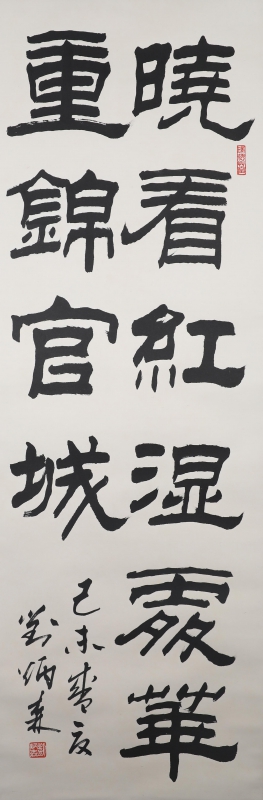 曉看紅湿處華
重錦官城
己未
劉炳森